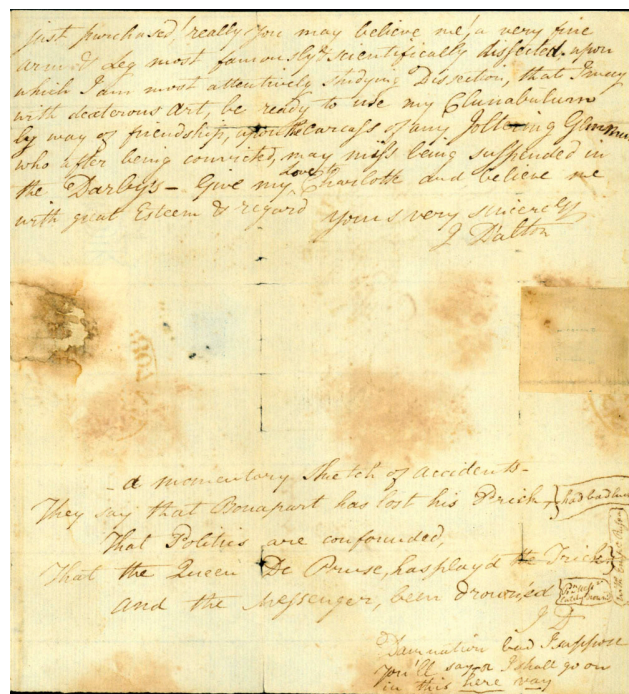 just purchased! really you may believe me! a very fine
arm & Leg most famously & scientifically dissected, upon
which I am most attentively studying Disection, that I may
with dexterous art, be ready to use my
by way of friendship, upon the carcass of any Joltering Gammon
who after being convicted, may miss being suspended in
the Darbys - Give my Love to Charlotte and believe me
with great Esteem & regard yours very sincerely
J Dalton
- a momentary sketch of accidents -
They say that Bonapart has lost his Prick, had bad luck
That Politics are confounded,
That the Queen De Pruse, has play'd the Trick,
and the Messenger, been drowned
J D
Damnation bad I suppose
you'll say & I shall go on
in this here way